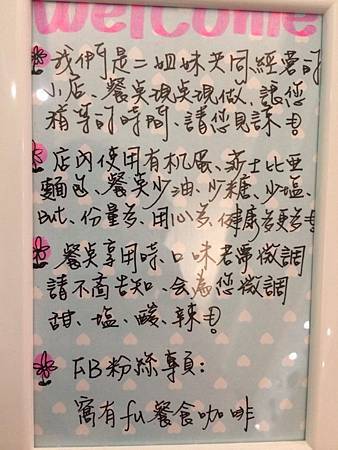 welcome
我們是二姐妹共同經營的
小店、餐點現點現做、讓您
稍等的時間、請您見諒!
店內使用有机蛋、莎士比亞
麵包、餐點少油、少糖、少塩、
but、份量多、用心多、健康多更多!
餐點享用時、口味若需微調
請不商告知、会為您微調
甜、塩、酸、辣!
FB粉絲專頁:
窩有fu餐食咖啡